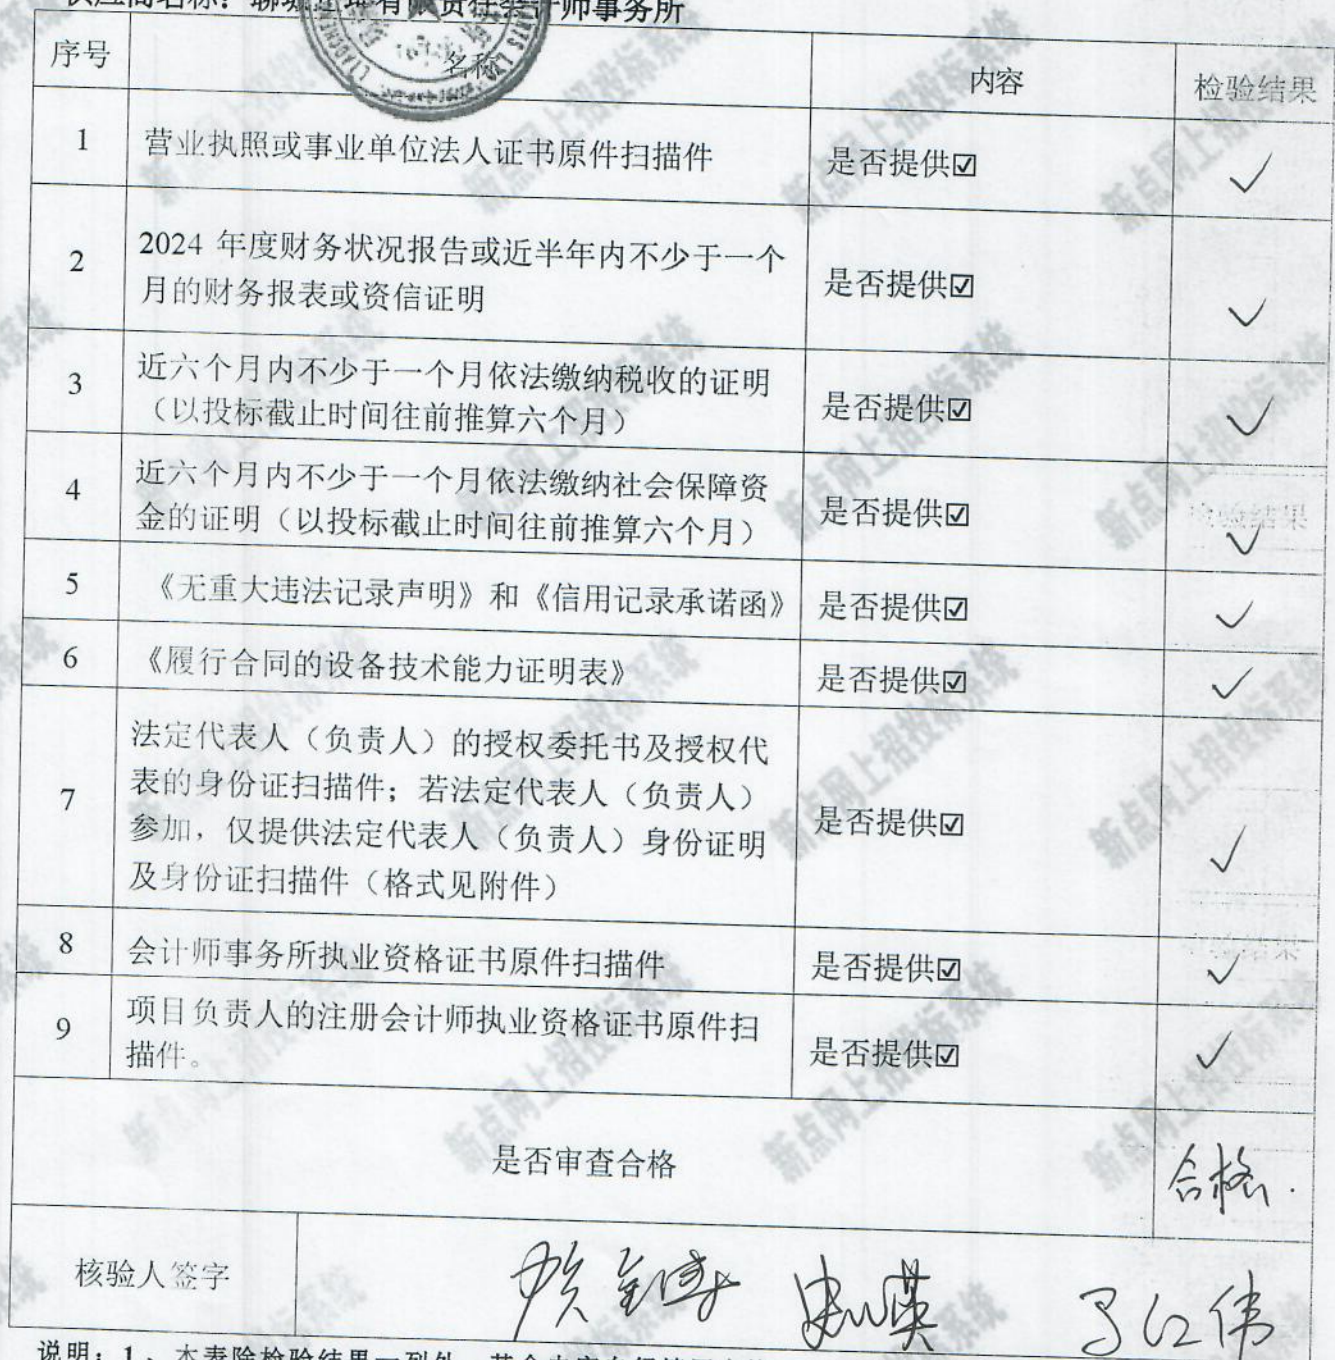 供应商名称：聊城 有限责任会计师事务所
序号 名称 内容 检验结果
1 营业执照或事业单位法人证书原件扫描件 是否提供☑ ✓
2 2024 年度财务状况报告或近半年内不少于一个
月的财务报表或资信证明 是否提供☑ ✓
3 近六个月内不少于一个月依法缴纳税收的证明
（以投标截止时间往前推算六个月） 是否提供☑ ✓
4 近六个月内不少于一个月依法缴纳社会保障资
金的证明（以投标截止时间往前推算六个月） 是否提供☑ ✓
检验结果
5 《无重大违法记录声明》和《信用记录承诺函》 是否提供☑ ✓
6 《履行合同的设备技术能力证明表》 是否提供☑ ✓
7 法定代表人（负责人）的授权委托书及授权代
表的身份证扫描件；若法定代表人（负责人）
参加，仅提供法定代表人（负责人）身份证明
及身份证扫描件（格式见附件） 是否提供☑ ✓
8 会计师事务所执业资格证书原件扫描件 是否提供☑ ✓
9 项目负责人的注册会计师执业资格证书原件扫
描件。 是否提供☑ ✓
是否审查合格 合格.
核验人签字
说明：1、本表除检验结果一列外，其余内容
新点网上招投标系统